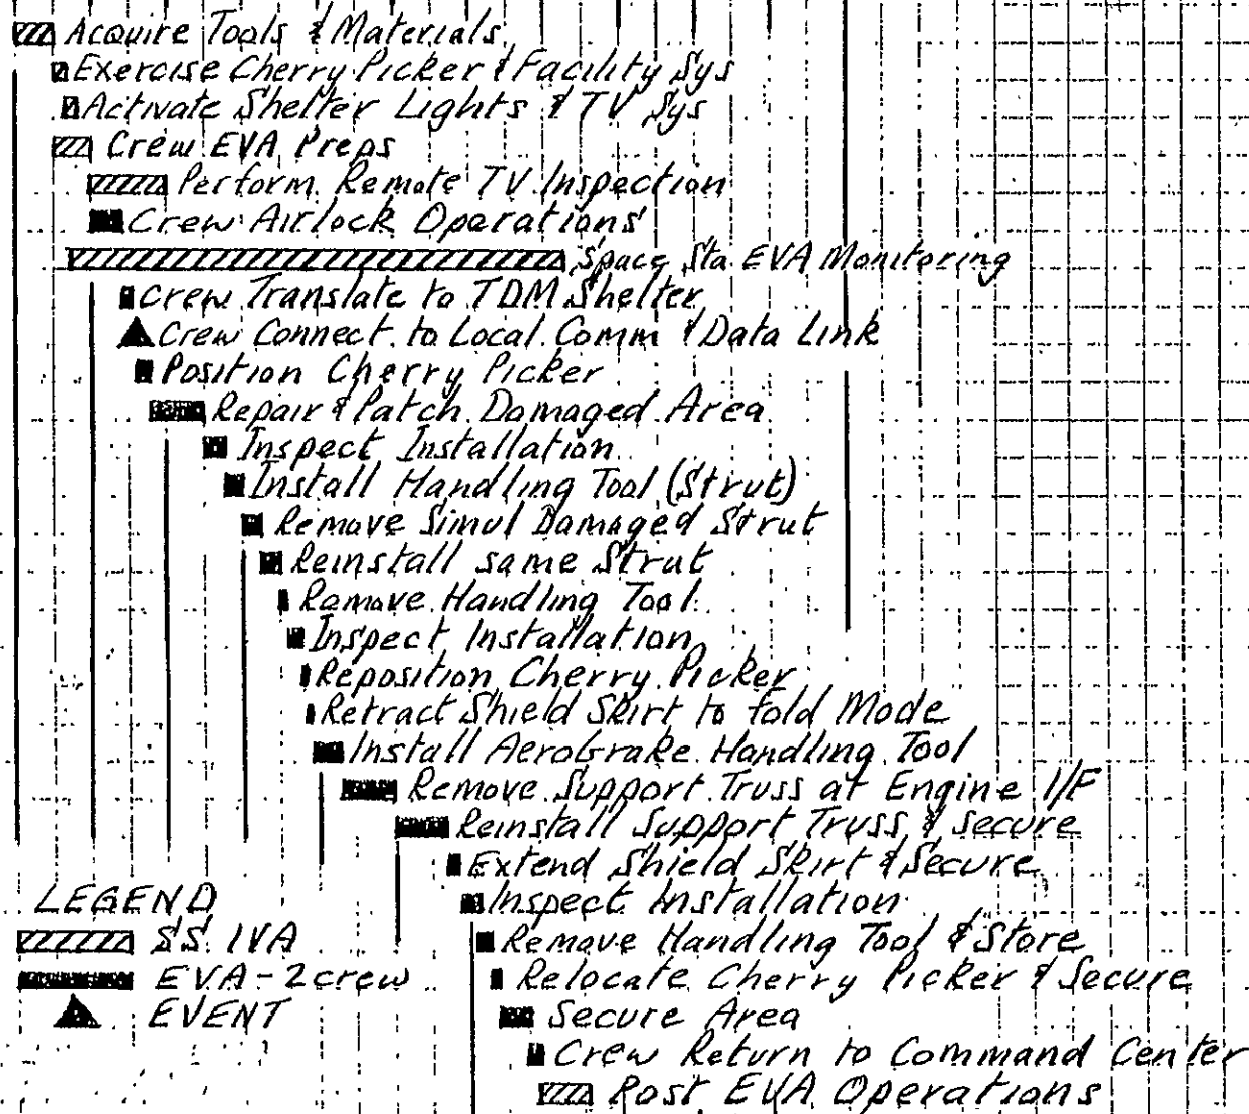 Acquire Tools & Materials
Exercise Cherry Picker & Facility Sys
Activate Shelter Lights & TV Sys
Crew EVA Preps
Perform Remote TV Inspection
Crew Airlock Operations
Space Sta EVA Monitoring
Crew Translate to TDM Shelter
Crew Connect to Local Comm & Data Link
Position Cherry Picker
Repair & Patch Damaged Area
Inspect Installation
Install Handling Tool (Strut)
Remove Simul Damaged Strut
Reinstall same Strut
Remove Handling Tool
Inspect Installation
Reposition Cherry Picker
Retract Shield Skirt to fold Mode
Install Aerobrake Handling Tool
Remove Support Truss at Engine I/F
Reinstall Support Truss & Secure
Extend Shield Skirt & Secure
Inspect Installation
Remove Handling Tool & Store
Relocate Cherry Picker & Secure
Secure Area
Crew Return to Command Center
Post EVA Operations
LEGEND
SS IVA
EVA-2crew
EVENT